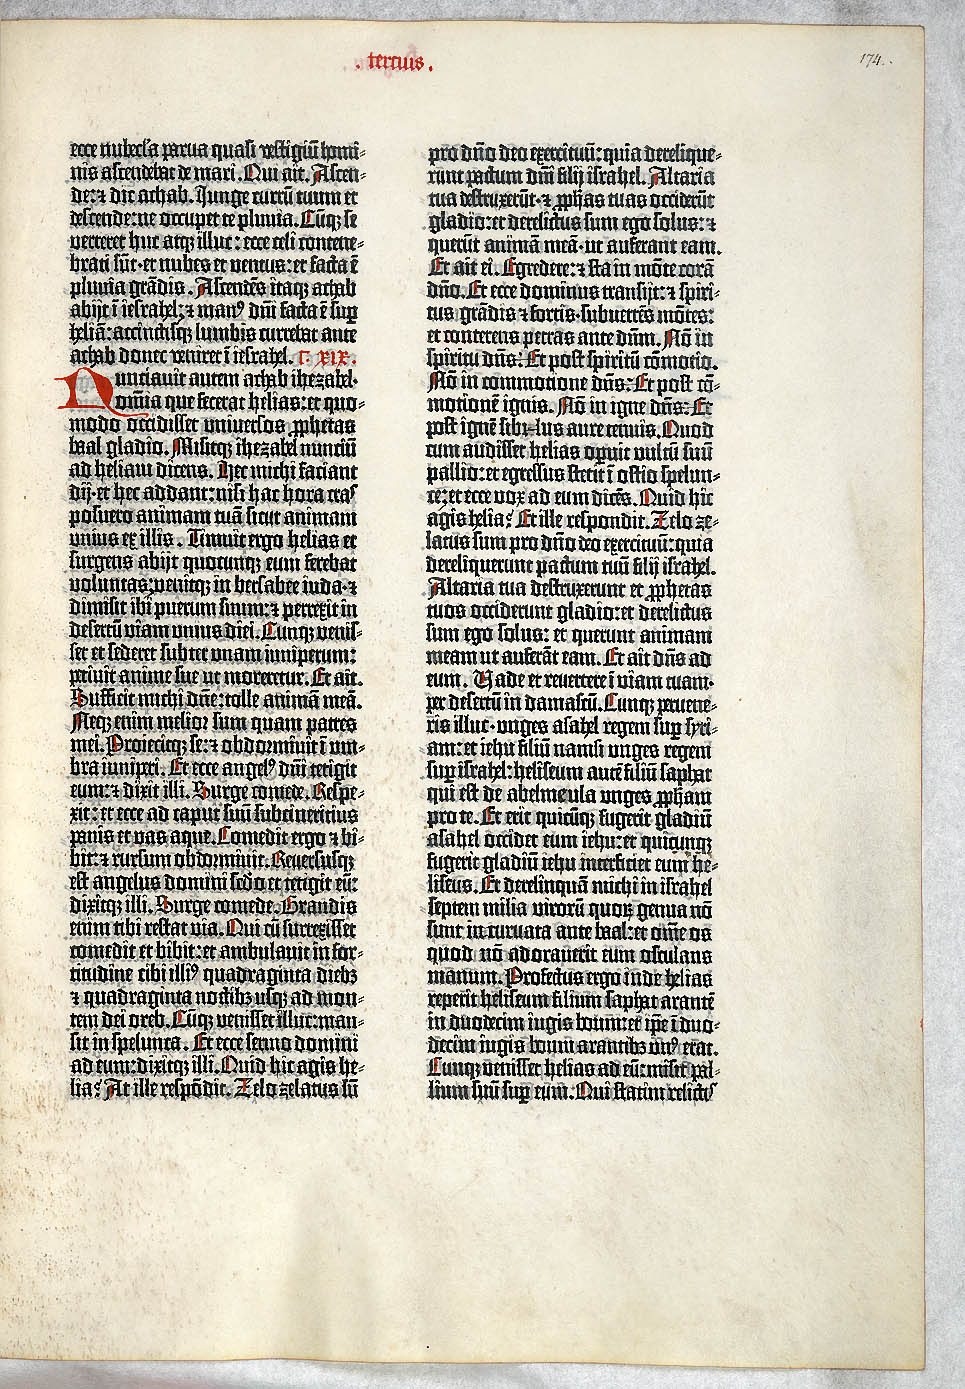 . tercius .
174.
ecce nubecl'a parua quasi vestigiū homi-
nis ascendebat de mari. Qui ait. Ascen-
de: ⁊ dic achab. Junge currū tuum et
descende: ne occupet te pluvia. Cūq; se
verteret huc atq; illuc: ecce celi contene-
brati sūt · et nubes et ventus: et facta ē
pluvia grādis. Ascendēs itaq; achab
abijt ī iesrahel: ⁊ man⁹ dn̄i facta ē suꝑ
heliā: accinctisq; lumbis currebat ante
achab donec veniret ī iesrahel. C. XIX.
Nunciavit autem achab ihezabel ·
om̄ia que fecerat helias: et quo-
modo occidisset universos ꝓphetas
baal gladio. Misitq; ihezabel nunciū
ad heliam dicens. Hec michi faciant
dij · et hec addant: nisi hac hora cras
posuero animam tuā sicut animam
unius ex illis. Timuit ergo helias et
surgens abijt quocunq; eum ferebat
voluntas: venitq; in bersabee iuda · ⁊
dimisit ibi puerum suum: ⁊ perrexit in
desertū viam unius diei. Cunq; venis-
set et sederet subter unam iuniperum:
petivit anime sue ut moreretur. Et ait.
Sufficit michi dn̄e: tolle animā meā.
Neq; enim melior sum quam patres
mei. Proiecitq; se: ⁊ obdormivit ī um-
bra iuniperi. Et ecce angel⁹ dn̄i tetigit
eum: ⁊ dixit illi. Surge comede. Respe-
xit: et ecce ad caput suū subcinericius
panis et vas aque. Comedit ergo ⁊ bi-
bit: ⁊ rursum obdormivit. Reversusq;
est angelus domini scd̄o et tetigit eū:
dixitq; illi. Surge comede. Grandis
enim tibi restat via. Qui cū surrexisset
comedit et bibit: et ambulavit in for-
titudine cibi illi⁹ quadraginta dieb⁊
⁊ quadraginta noctib⁊ usq; ad mon-
tem dei oreb. Cūq; venisset illuc: man-
sit in spelunca. Et ecce sermo domini
ad eum: dixitq; illi. Quid hic agis he-
lia? At ille respōdit. Zelo zelatus sū
pro dn̄o deo exercituū: quia derelique-
runt pactum dn̄i filij israhel. Altaria
tua destruxerūt · ⁊ ꝓphetas tuas occiderūt
gladio: et derelictus sum ego solus: ⁊
querūt animā meā · ut auferant eam.
Et ait ei. Egredere: ⁊ sta in mōte corā
dn̄o. Et ecce dominus transijt: ⁊ spiri-
tus grādis ⁊ fortis · subvertēs mōtes:
et conterens petras ante dn̄m. Nō in
spiritu dn̄s: Et post spiritū cōmotio.
Nō in commotione dn̄s: Et post cō-
motionē ignis. Nō in igne dn̄s: Et
post ignē sibilus aure tenuis. Quod
cum audisset helias oꝑuit vultū suū
pallio: et egressus stetit ī ostio spelun-
ce: et ecce vox ad eum dicēs. Quid hic
agis helia? Et ille respondit. Zelo ze-
latus sum pro dn̄o deo exercituū: quia
dereliquerunt pactum tuū filij israhel.
Altaria tua destruxerunt et ꝓphetas
tuos occiderunt gladio: et derelictus
sum ego solus: et querunt animam
meam ut auferāt eam. Et ait dn̄s ad
eum. Vade et revertere ī viam tuam ·
per desertū in damascū. Cunq; pervene-
ris illuc · unges asahel regem suꝑ syri-
am: et iehu filiū namsi unges regem
suꝑ israhel: heliseum autē filiū saphat
qui est de abelmeula unges ꝓphetam
pro te. Et erit quicūq; fugerit gladiū
asahel occidet eum iehu: et quicunq;
fugerit gladiū iehu interficiet eum he-
liseus. Et derelinquā michi in israhel
septem milia virorū quoꝝ genua nō
sunt incurvata ante baal: et om̄e os
quod nō adoraverit eum osculans
manum. Profectus ergo inde helias
reperit heliseum filium saphat arantē
in duodecim iugis boum: et ip̄e ī duo-
decim iugis boum arantib⁊ un⁹ erat.
Cunq; venisset helias ad eū: misit pal-
lium suū suꝑ eum. Qui statim relict⁹